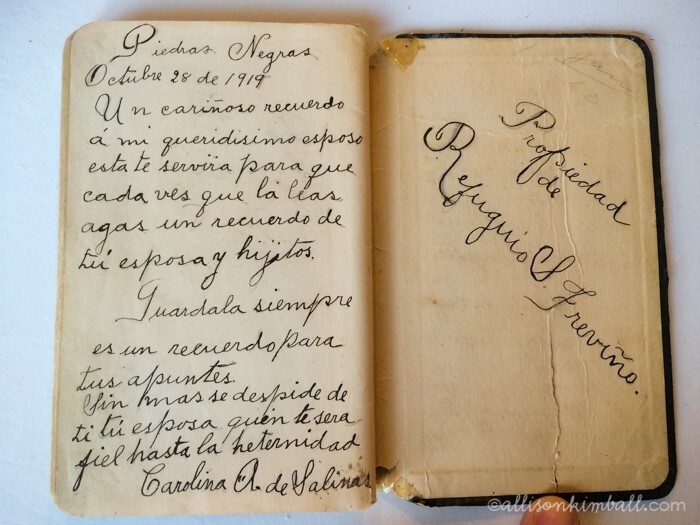 Piedras Negras
Octubre 28 de 1919
Un cariñoso recuerdo
á mi queridisimo esposo
esta te servira para que
cada ves que la leas
agas un recuerdo de
tú esposa y hijitos.
Guardala siempre
es un recuerdo para
tus apuntes.
Sin mas se despide de
ti tú esposa quien te sera
fiel hasta la heternidad
Carolina A. de Salinas
Propiedad
de
Refugio S. Treviño.
©allisonkimball.com